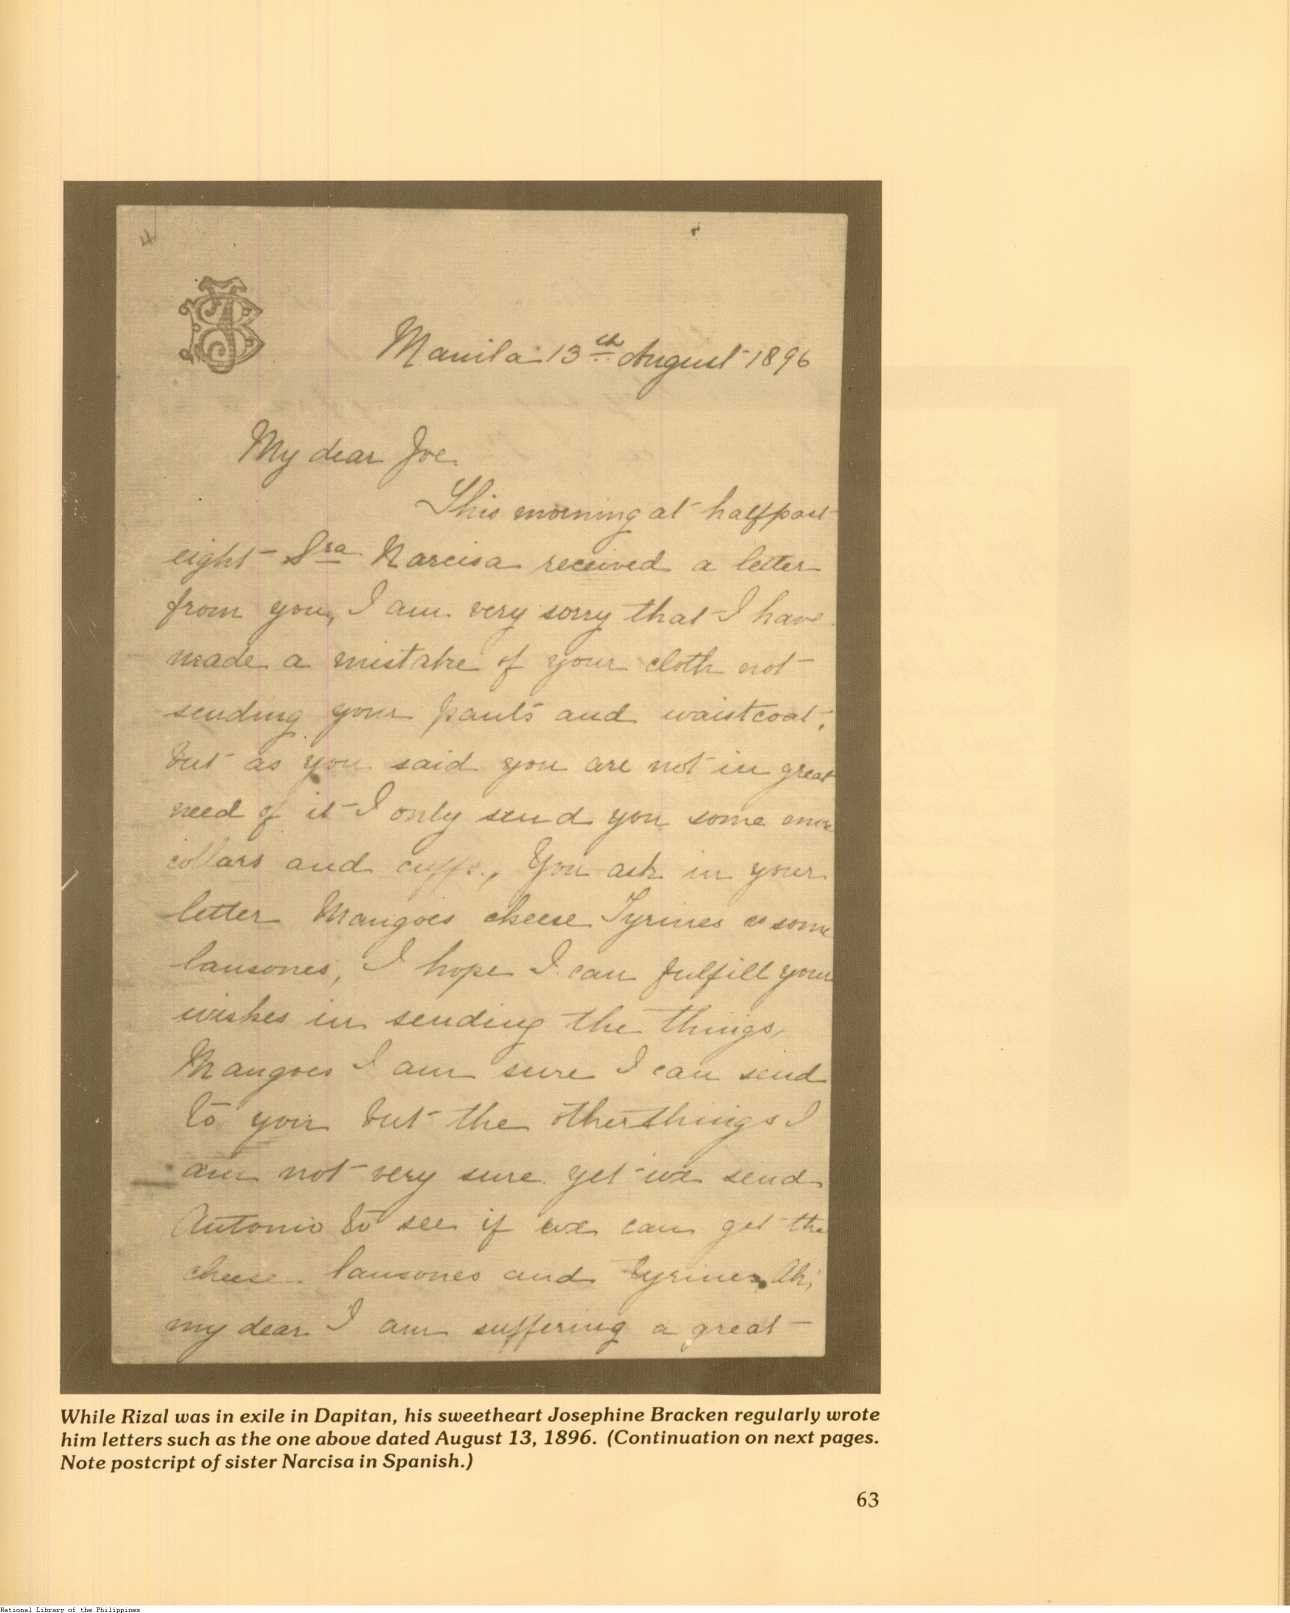 4
JB
Manila 13th August 1896
My dear Joe.
This morning at half past
eight Sra Narcisa received a letter
from you, I am very sorry that I have
made a mistake of your cloth not
sending your pants and waistcoat,
but as you said you are not in great
need of it I only send you some more
collars and cuffs, You ask in your
letter Mangoes cheese Tyrines & some
lansones, I hope I can fulfill your
wishes in sending the things,
Mangoes I am sure I can send
to you but the other things I
am not very sure yet we send
Antonio to see if we can get the
cheese lansones and Tyrines, Ah,
my dear I am suffering a great
While Rizal was in exile in Dapitan, his sweetheart Josephine Bracken regularly wrote
him letters such as the one above dated August 13, 1896. (Continuation on next pages.
Note postcript of sister Narcisa in Spanish.)
63
National Library of the Philippines